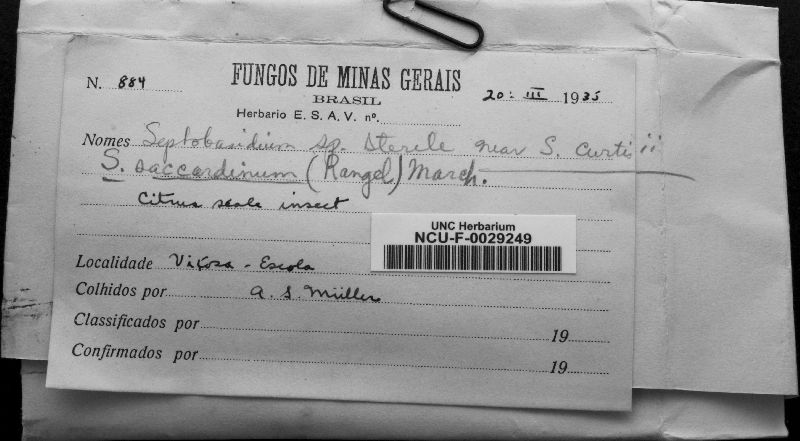 FUNGOS DE MINAS GERAIS
N. 884
BRASIL
20-III 1935
Herbario E. S. A. V. nº.
Nomes Septobasidium sp. sterile near S. curtisii
S. saccardinum (Rangel) March.
Citrus scale insect
UNC Herbarium
NCU-F-0029249
Localidade Viçosa - Escola
Colhidos por A. S. Müller
Classificados por 19
Confirmados por 19